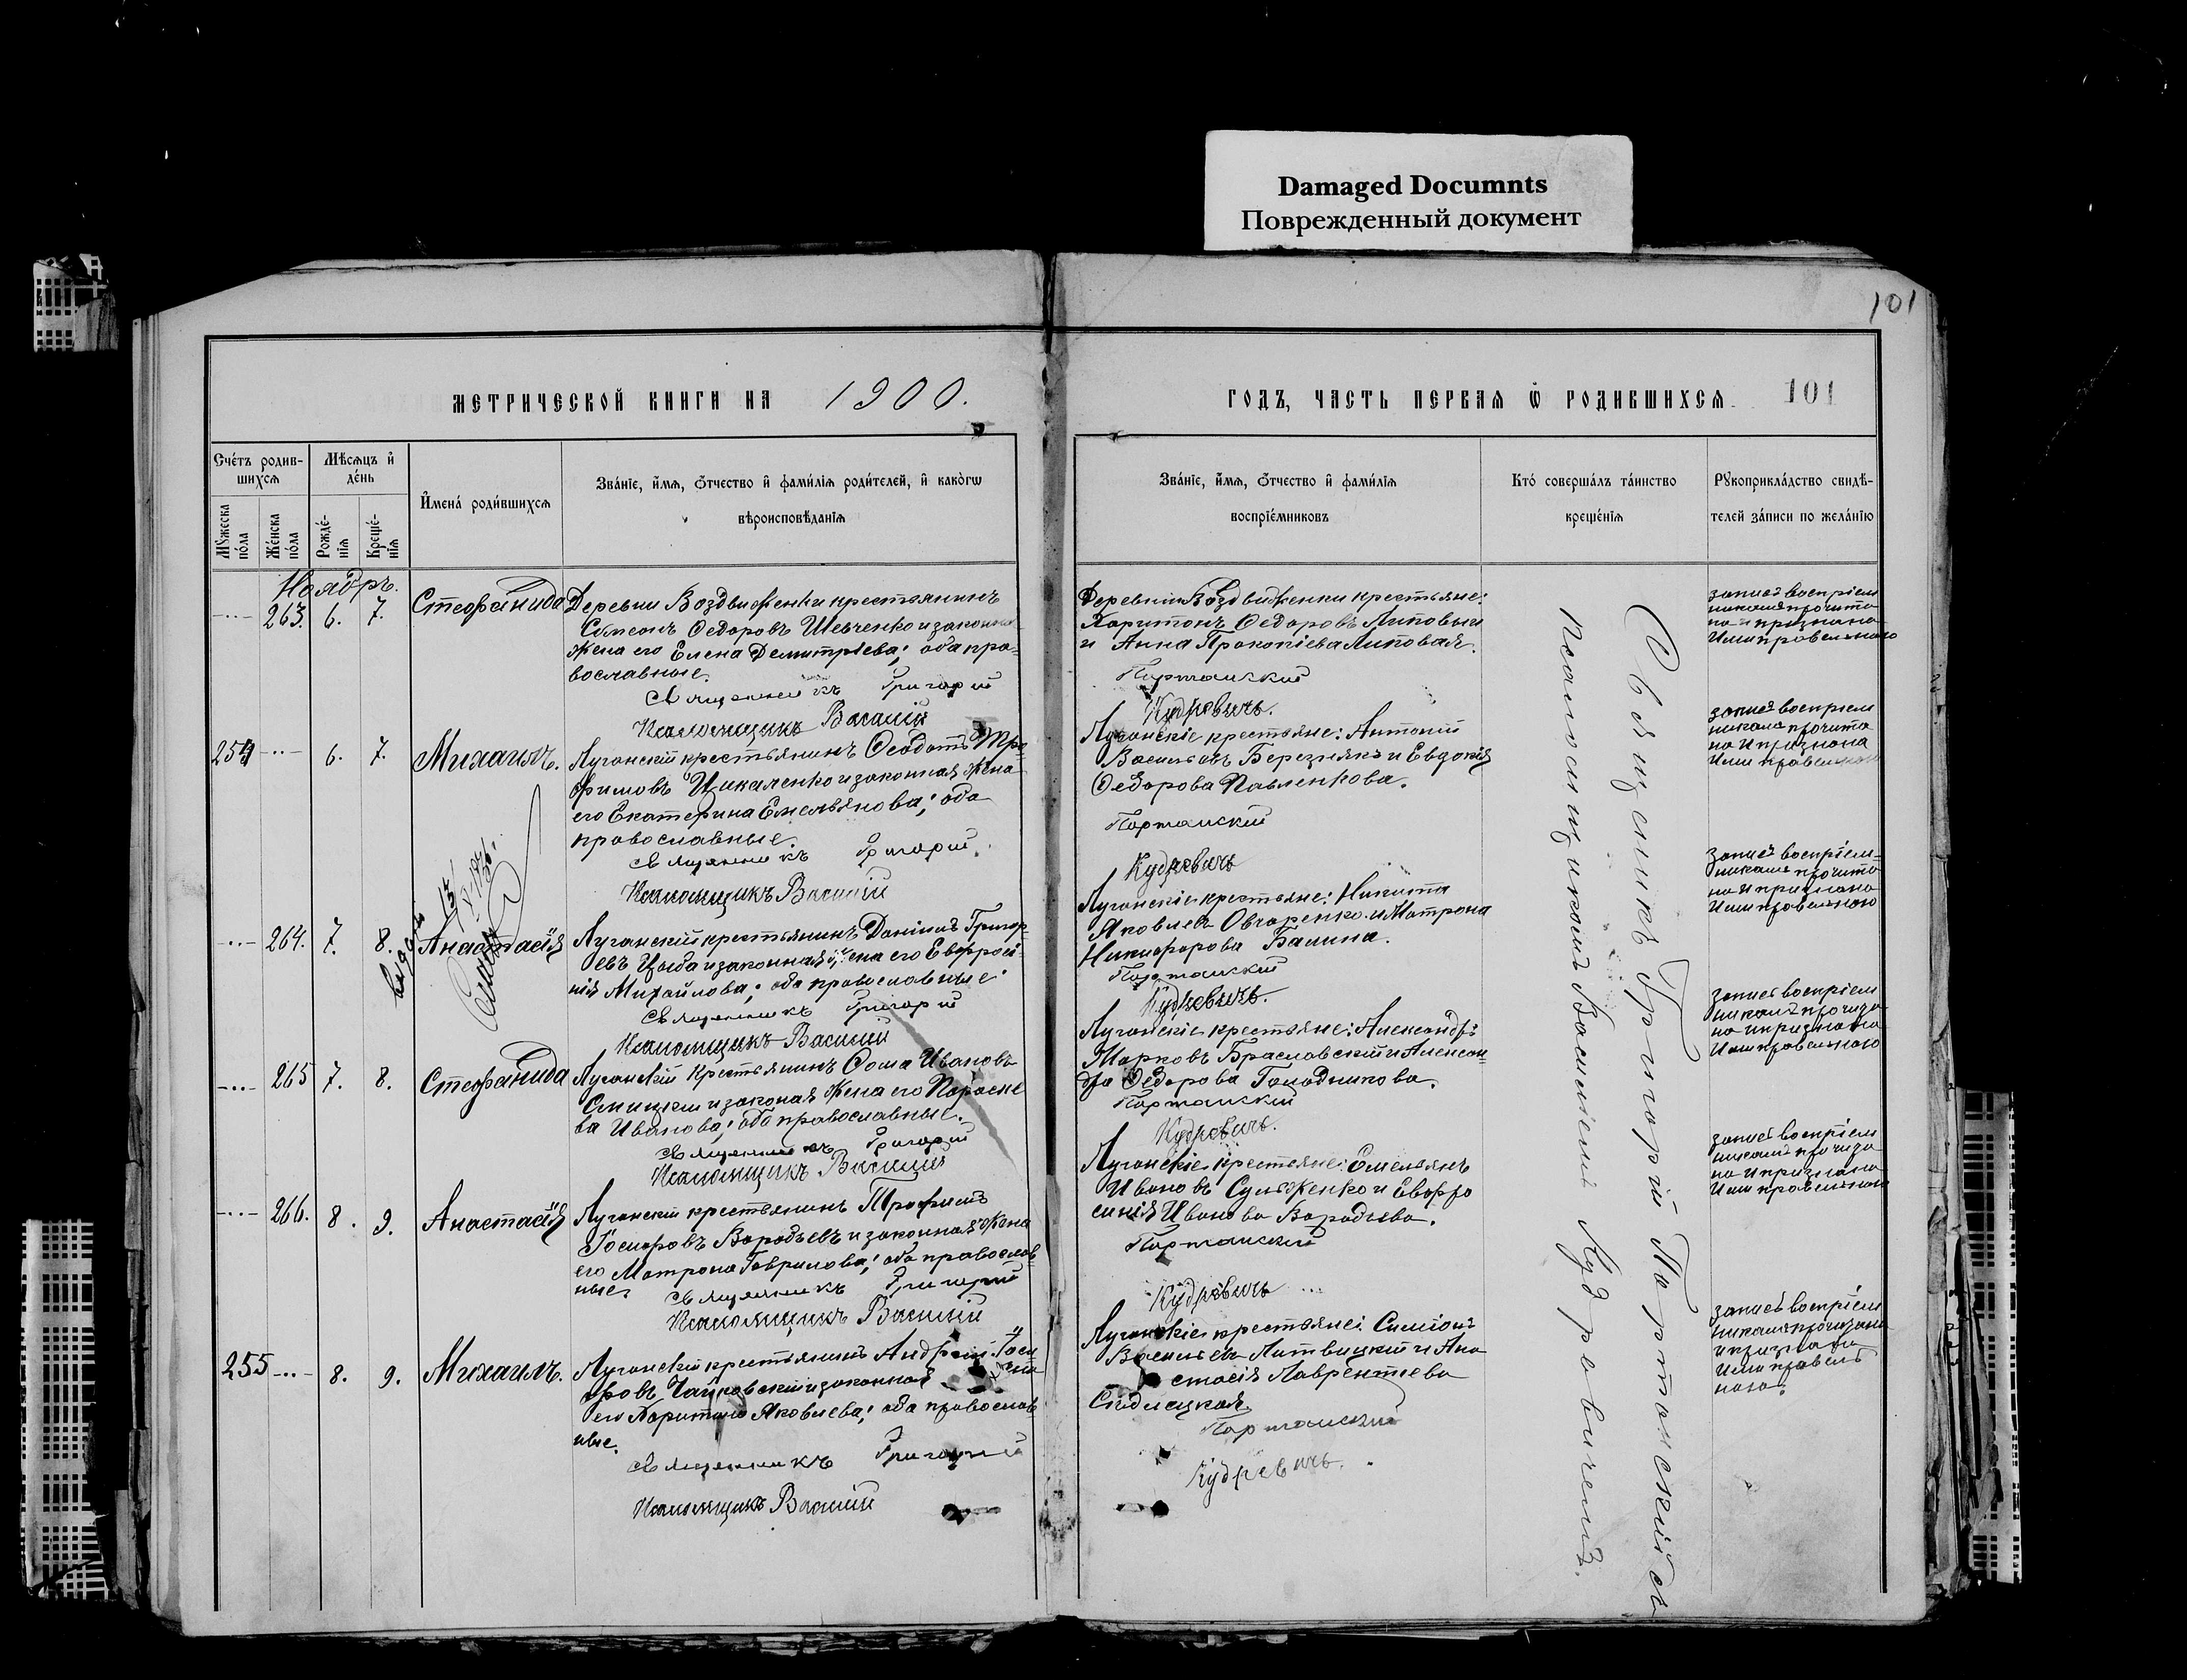 Damaged Documnts
Поврежденный документ
101
МЕТРИЧЕСКОЙ КНИГИ НА 1900.
ГОДЪ, ЧАСТЬ ПЕРВАЯ Ѿ РОДИВШИХСЯ 101
Счетъ родив-
шихся
Мѣсяцъ и
день
Мужеска
пола
Женска
пола
Рожде-
нія
Креще-
нія
Имена родившихся
Званіе, имя, отчество и фамилія родителей, и какогѡ
вѣроисповѣданія
Званіе, имя, отчество и фамилія
воспріемниковъ
Кто совершалъ таинство
крещенія
Рукоприкладство свидѣ-
телей записи по желанію
Ноябрь.
263. 6. 7. Стефанида
Деревни Воздвиженки крестьянинъ
Симеонъ Ѳедоровъ Шевченко и законная
жена его Елена Демитріева; оба пра-
вославные.
Священникъ Григорій
Псаломщикъ Василій
Деревни Воздвиженки крестьяне:
Харитонъ Ѳедоровъ Липовый
и Анна Прокопіева Липовая.
Портанский
Кудревичъ.
запись воспріем
никами прочита
на и признана
ими правельною
254 6. 7. Михаилъ.
Луганскій крестьянинъ Ѳеодотъ Тро-
фимовъ Чикаленко и законная жена
его Екатерина Емельянова; оба
православные.
Священникъ Григорій.
Псаломщикъ Василій
Луганскіе крестьяне: Антоній
Васильевъ Березнякъ и Евдокія
Ѳедорова Павленкова.
Портанский
Кудревичъ
запись воспріем
никами прочита
на и признана
ими правельною
264. 7. 8. Анастасія
Луганскій крестьянинъ Даніилъ Григор-
евъ Цыба и законная жена его Евфроси-
нія Михайлова; оба православные.
Священникъ Григорій
Псаломщикъ Василій
Луганскіе крестьяне: Никита
Яковлевъ Овчаренко и Матрона
Никифорова Балина.
Портанский
Кудревичъ.
запись воспріем-
никами прочита
на и признана
ими правельною
265 7. 8. Стефанида
Луганскій крестьянинъ Ѳома Ивановъ
и законая жена его Параске
ва Иванова; оба православные.
Священникъ Григорій
Псаломщикъ Василій
Луганскіе крестьяне: Александръ
Марковъ Браславскій и Алексан-
дра Ѳедорова Голодникова.
Портанский
Кудревичъ.
запись воспріем
никами прочита
на и признана
ими правельною
266. 8. 9. Анастасія
Луганскій крестьянинъ Трофимъ
Іосифовъ Вородьевъ и законная жена
его Матрона Гаврилова; оба православ
ные.
Священникъ Григорій
Псаломщикъ Василій
Луганскіе крестьяне: Емельянъ
Ивановъ Сулженко и Евфро
синія Иванова Вородьева.
Портанский
Кудревичъ
запись воспріем
никами прочита
на и признана
ими правельною
255 8. 9. Михаилъ.
Луганскій крестьянинъ Андрей Іоси
фовъ Чайковскій и законная жена
его Харитина Яковлева; оба православ
ные.
Священникъ Григорій
Псаломщикъ Василій
Луганскіе крестьяне: Симіонъ
Васильевъ Литвицкій и Ана
стасія Лаврентіева
Портанский
Кудревичъ.
запись воспріем
никами прочитана
и признана
ими правель
ною.
Священникъ Григорій Портанскій съ
псаломщикомъ Василіемъ Кудревичемъ.